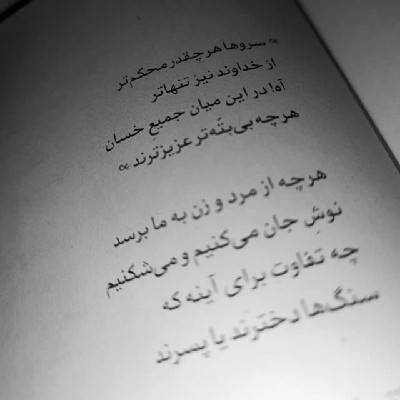 « سروها هر چقدر محکم‌تر
از خداوند نیز تنهاتر
آه! در این میان جمیعِ خسان
هرچه بی‌بتّه‌تر عزیزترند »
هرچه از مرد و زن به ما برسد
نوشِ جان می‌کنیم و می‌شکنیم
چه تفاوت برای آینه که
سنگ‌ها دخترند یا پسرند